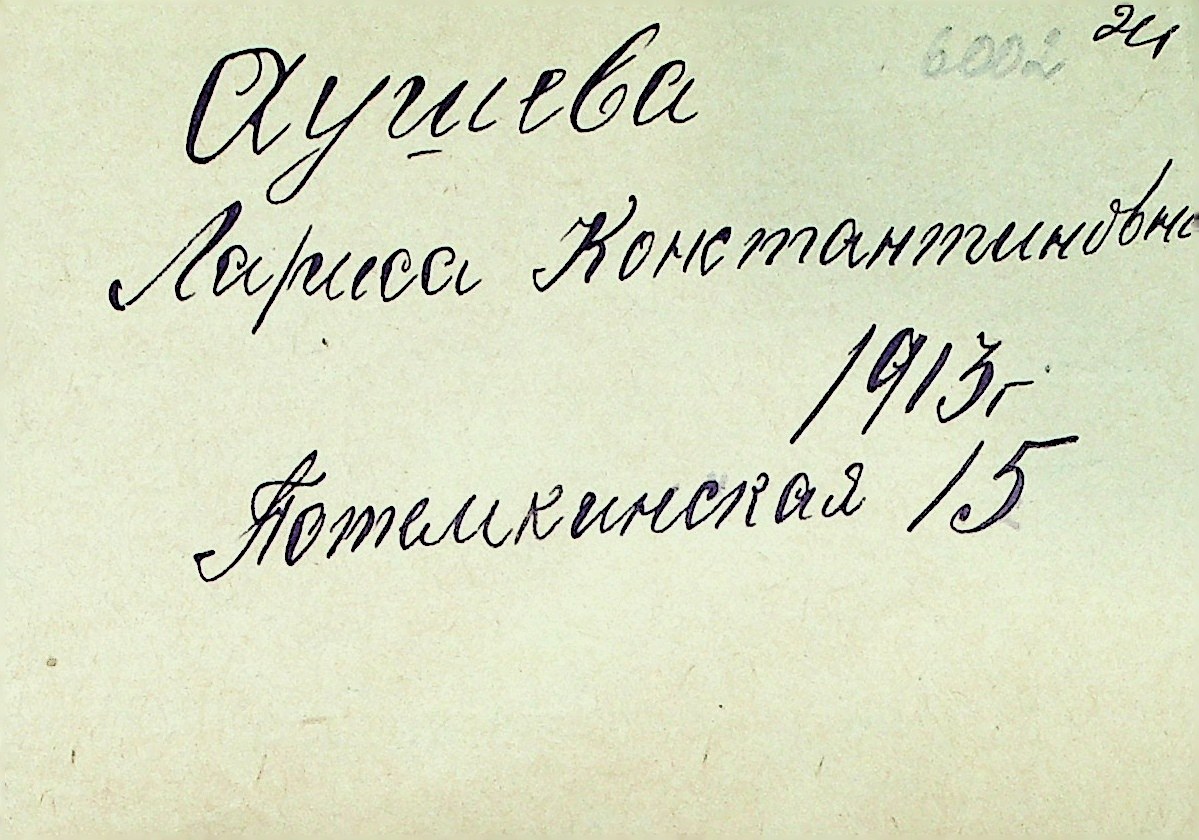 6002 24
Аушева
Лариса Константиновна
1913г
Потемкинская 15